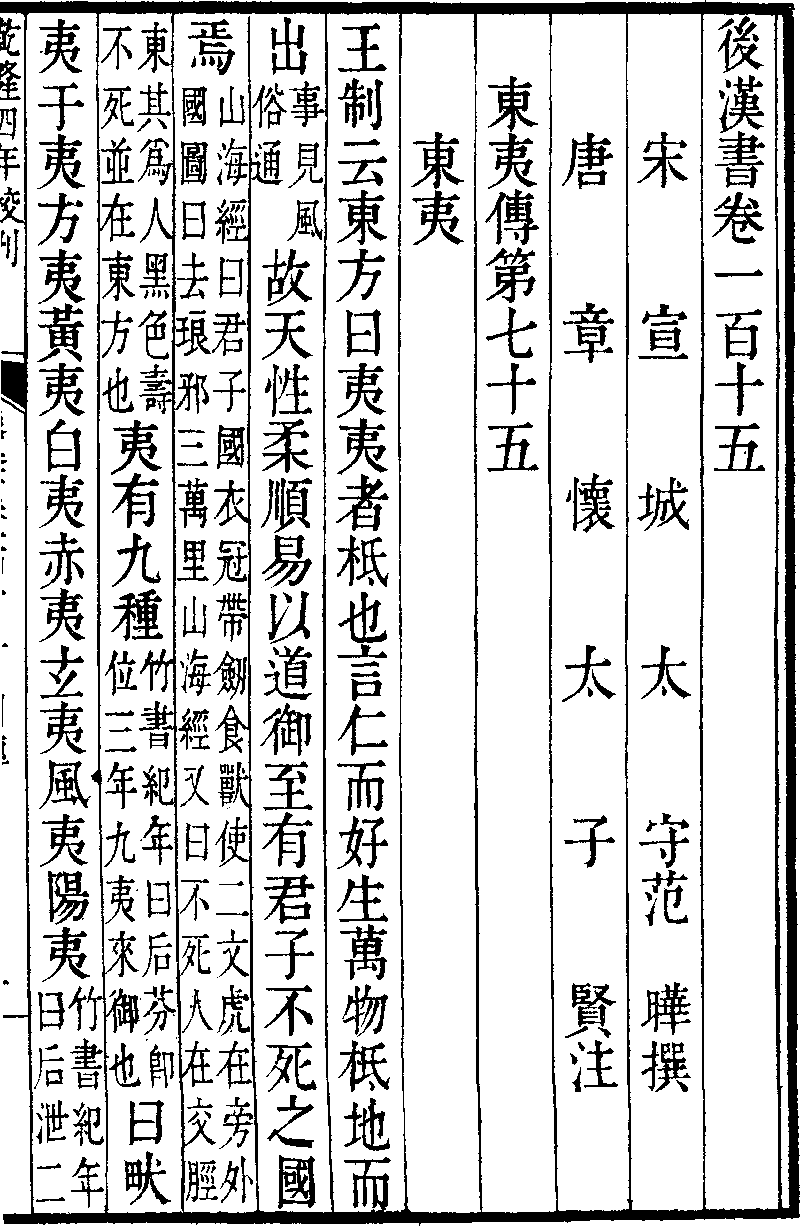 後漢書卷一百十五
宋宣城太守范曄撰
唐章懷太子賢注
東夷傳第七十五
東夷
王制云東方曰夷夷者柢也言仁而好生萬物柢地而
出事見風俗通故天性柔順易以道御至有君子不死之國
焉山海經曰君子國衣冠帶劒食獸使二文虎在旁外國圖曰去琅邪三萬里山海經又曰不死人在交脛
東其爲人黑色壽不死並在東方也夷有九種竹書紀年曰后芬卽位三年九夷來御也曰畎
夷于夷方夷黃夷白夷赤夷玄夷風夷陽夷竹書紀年曰后泄二
乾隆四年校刊